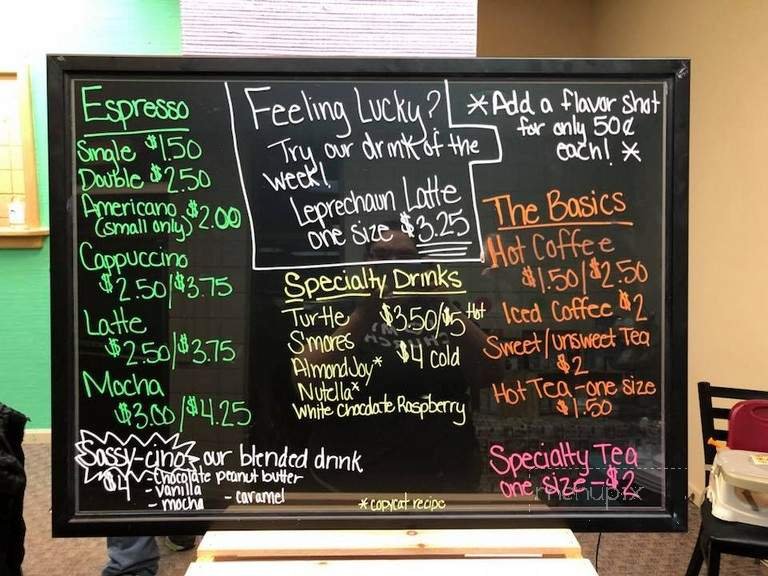 Espresso
Single $1.50
Double $2.50
Americano $2.00
(small only)
Cappuccino
$2.50/$3.75
Latte
$2.50/$3.75
Mocha
$3.00/$4.25
Feeling Lucky?
Try our drink of the
week!
Leprechaun Latte
one size $3.25
*Add a flavor shot
for only 50¢
each! *
Specialty Drinks
Turtle $3.50/$5 Hot
S'mores
$4 cold
Almond Joy*
Nutella*
White Chocolate Raspberry
The Basics
Hot Coffee
$1.50/$2.50
Iced Coffee $2
Sweet/unsweet Tea
$2
Hot Tea - one size
$1.50
Sassy-cino - our blended drink
$4 - Chocolate peanut butter
- vanilla
- mocha - caramel
*copycat recipe
Specialty Tea
one size - $2
menupix